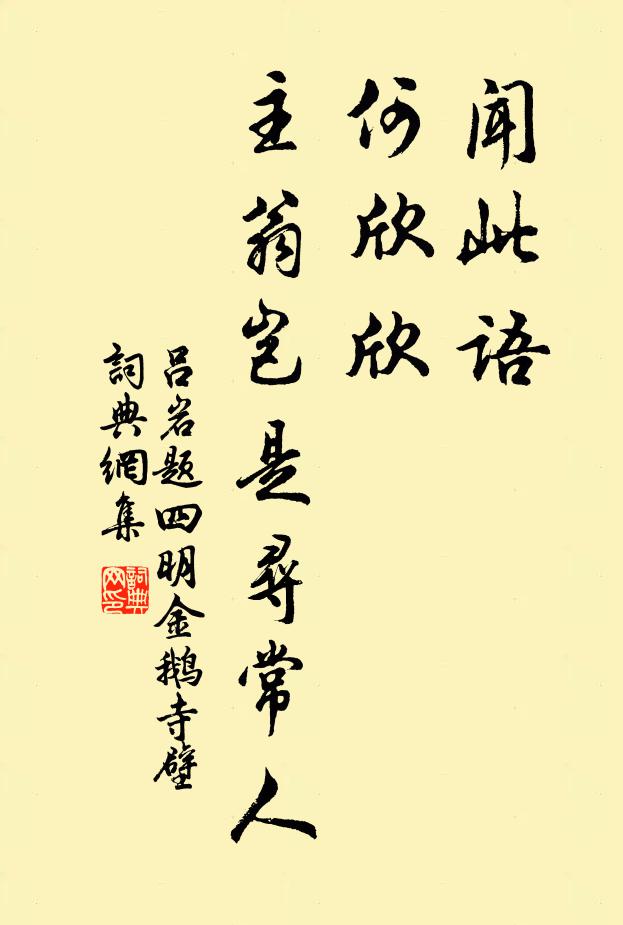 闻此语
何欣欣
主翁岂是寻常人
吕岩题四明金鹅寺壁
詞典網集
詞典
网印